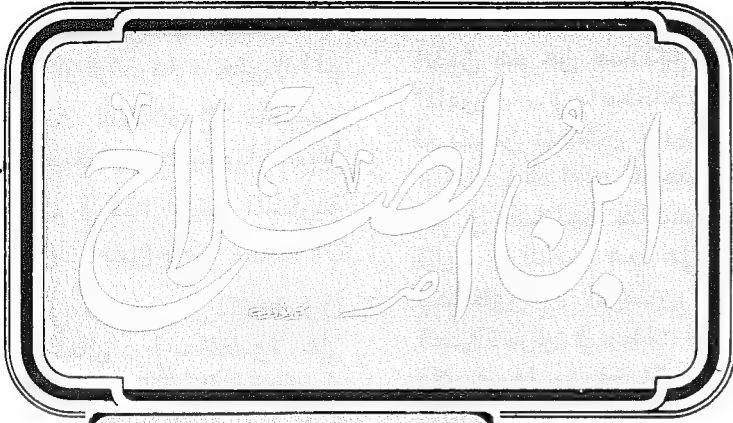 ابنُ الصلاح